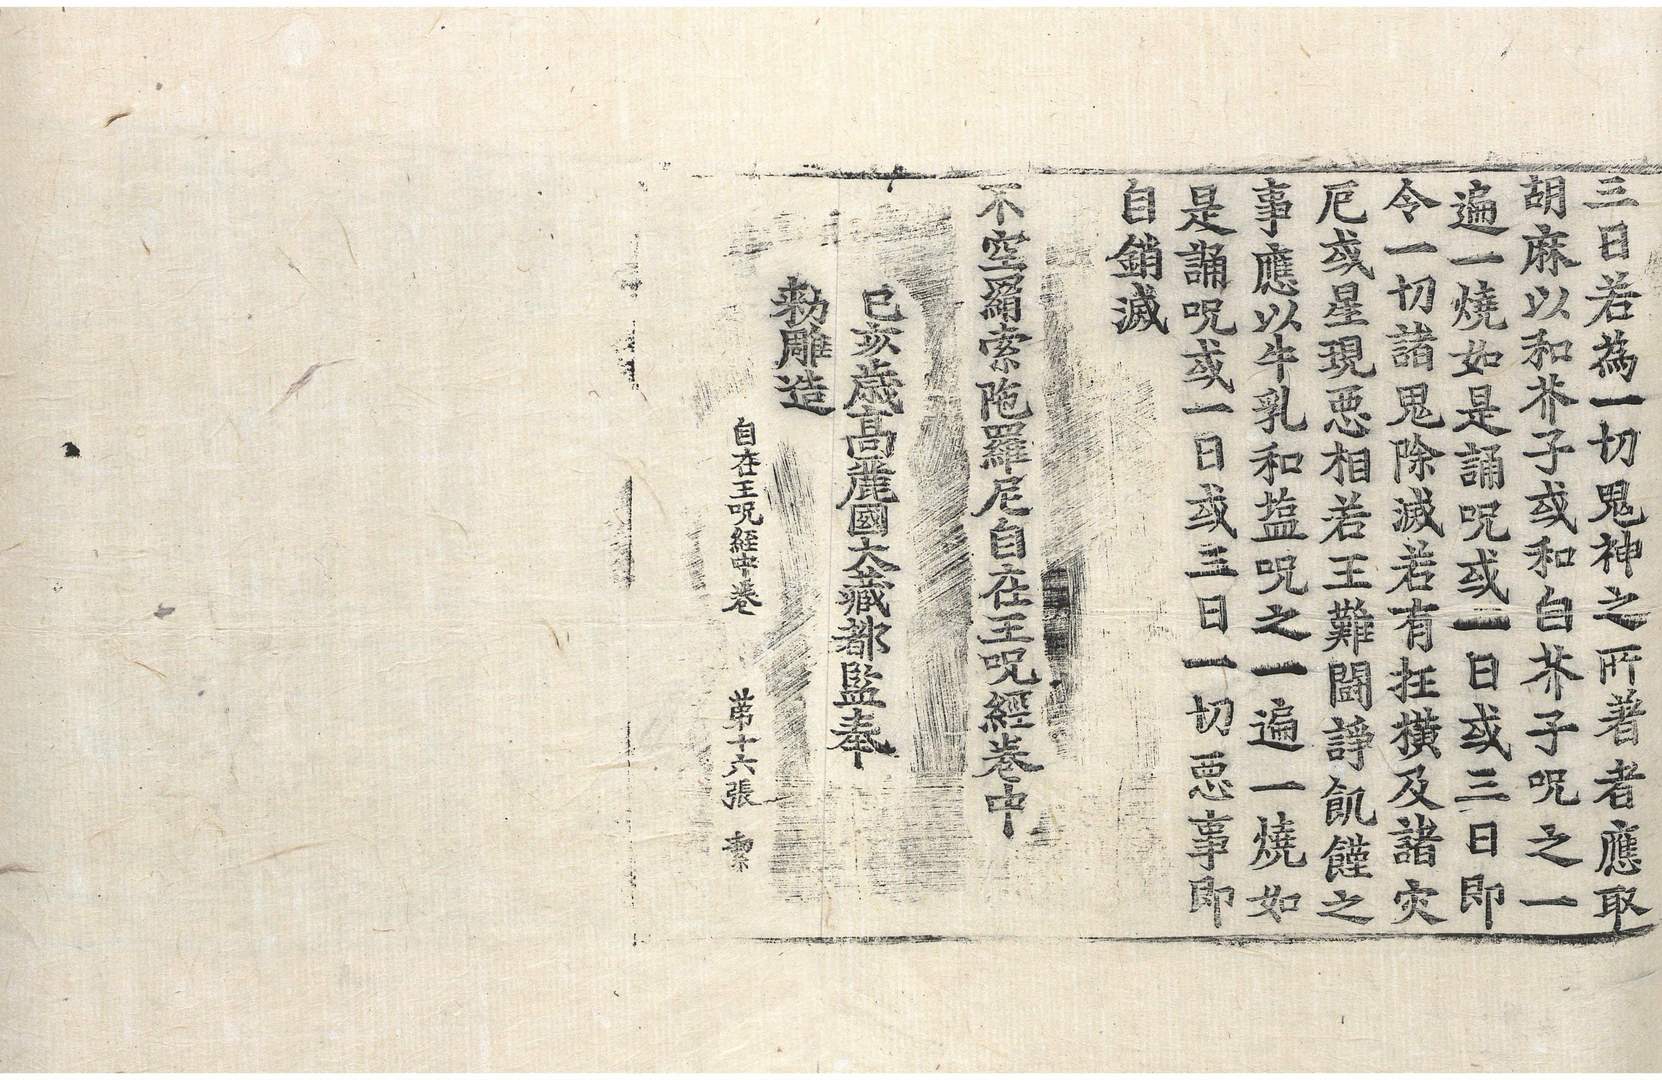 三日若為一切鬼神之所著者應取
胡麻以和芥子或和白芥子呪之一
遍一燒如是誦呪或一日或三日即
令一切諸鬼除滅若有抂橫及諸灾
厄或星現惡相若王難鬪諍飢饉之
事應以牛乳和塩呪之一遍一燒如
是誦呪或一日或三日一切惡事即
自銷滅
不空羂索陁羅尼自在王呪經卷中
己亥歲高麗國大藏都監奉
勅雕造
自在王呪經中卷 苐十六張 潔